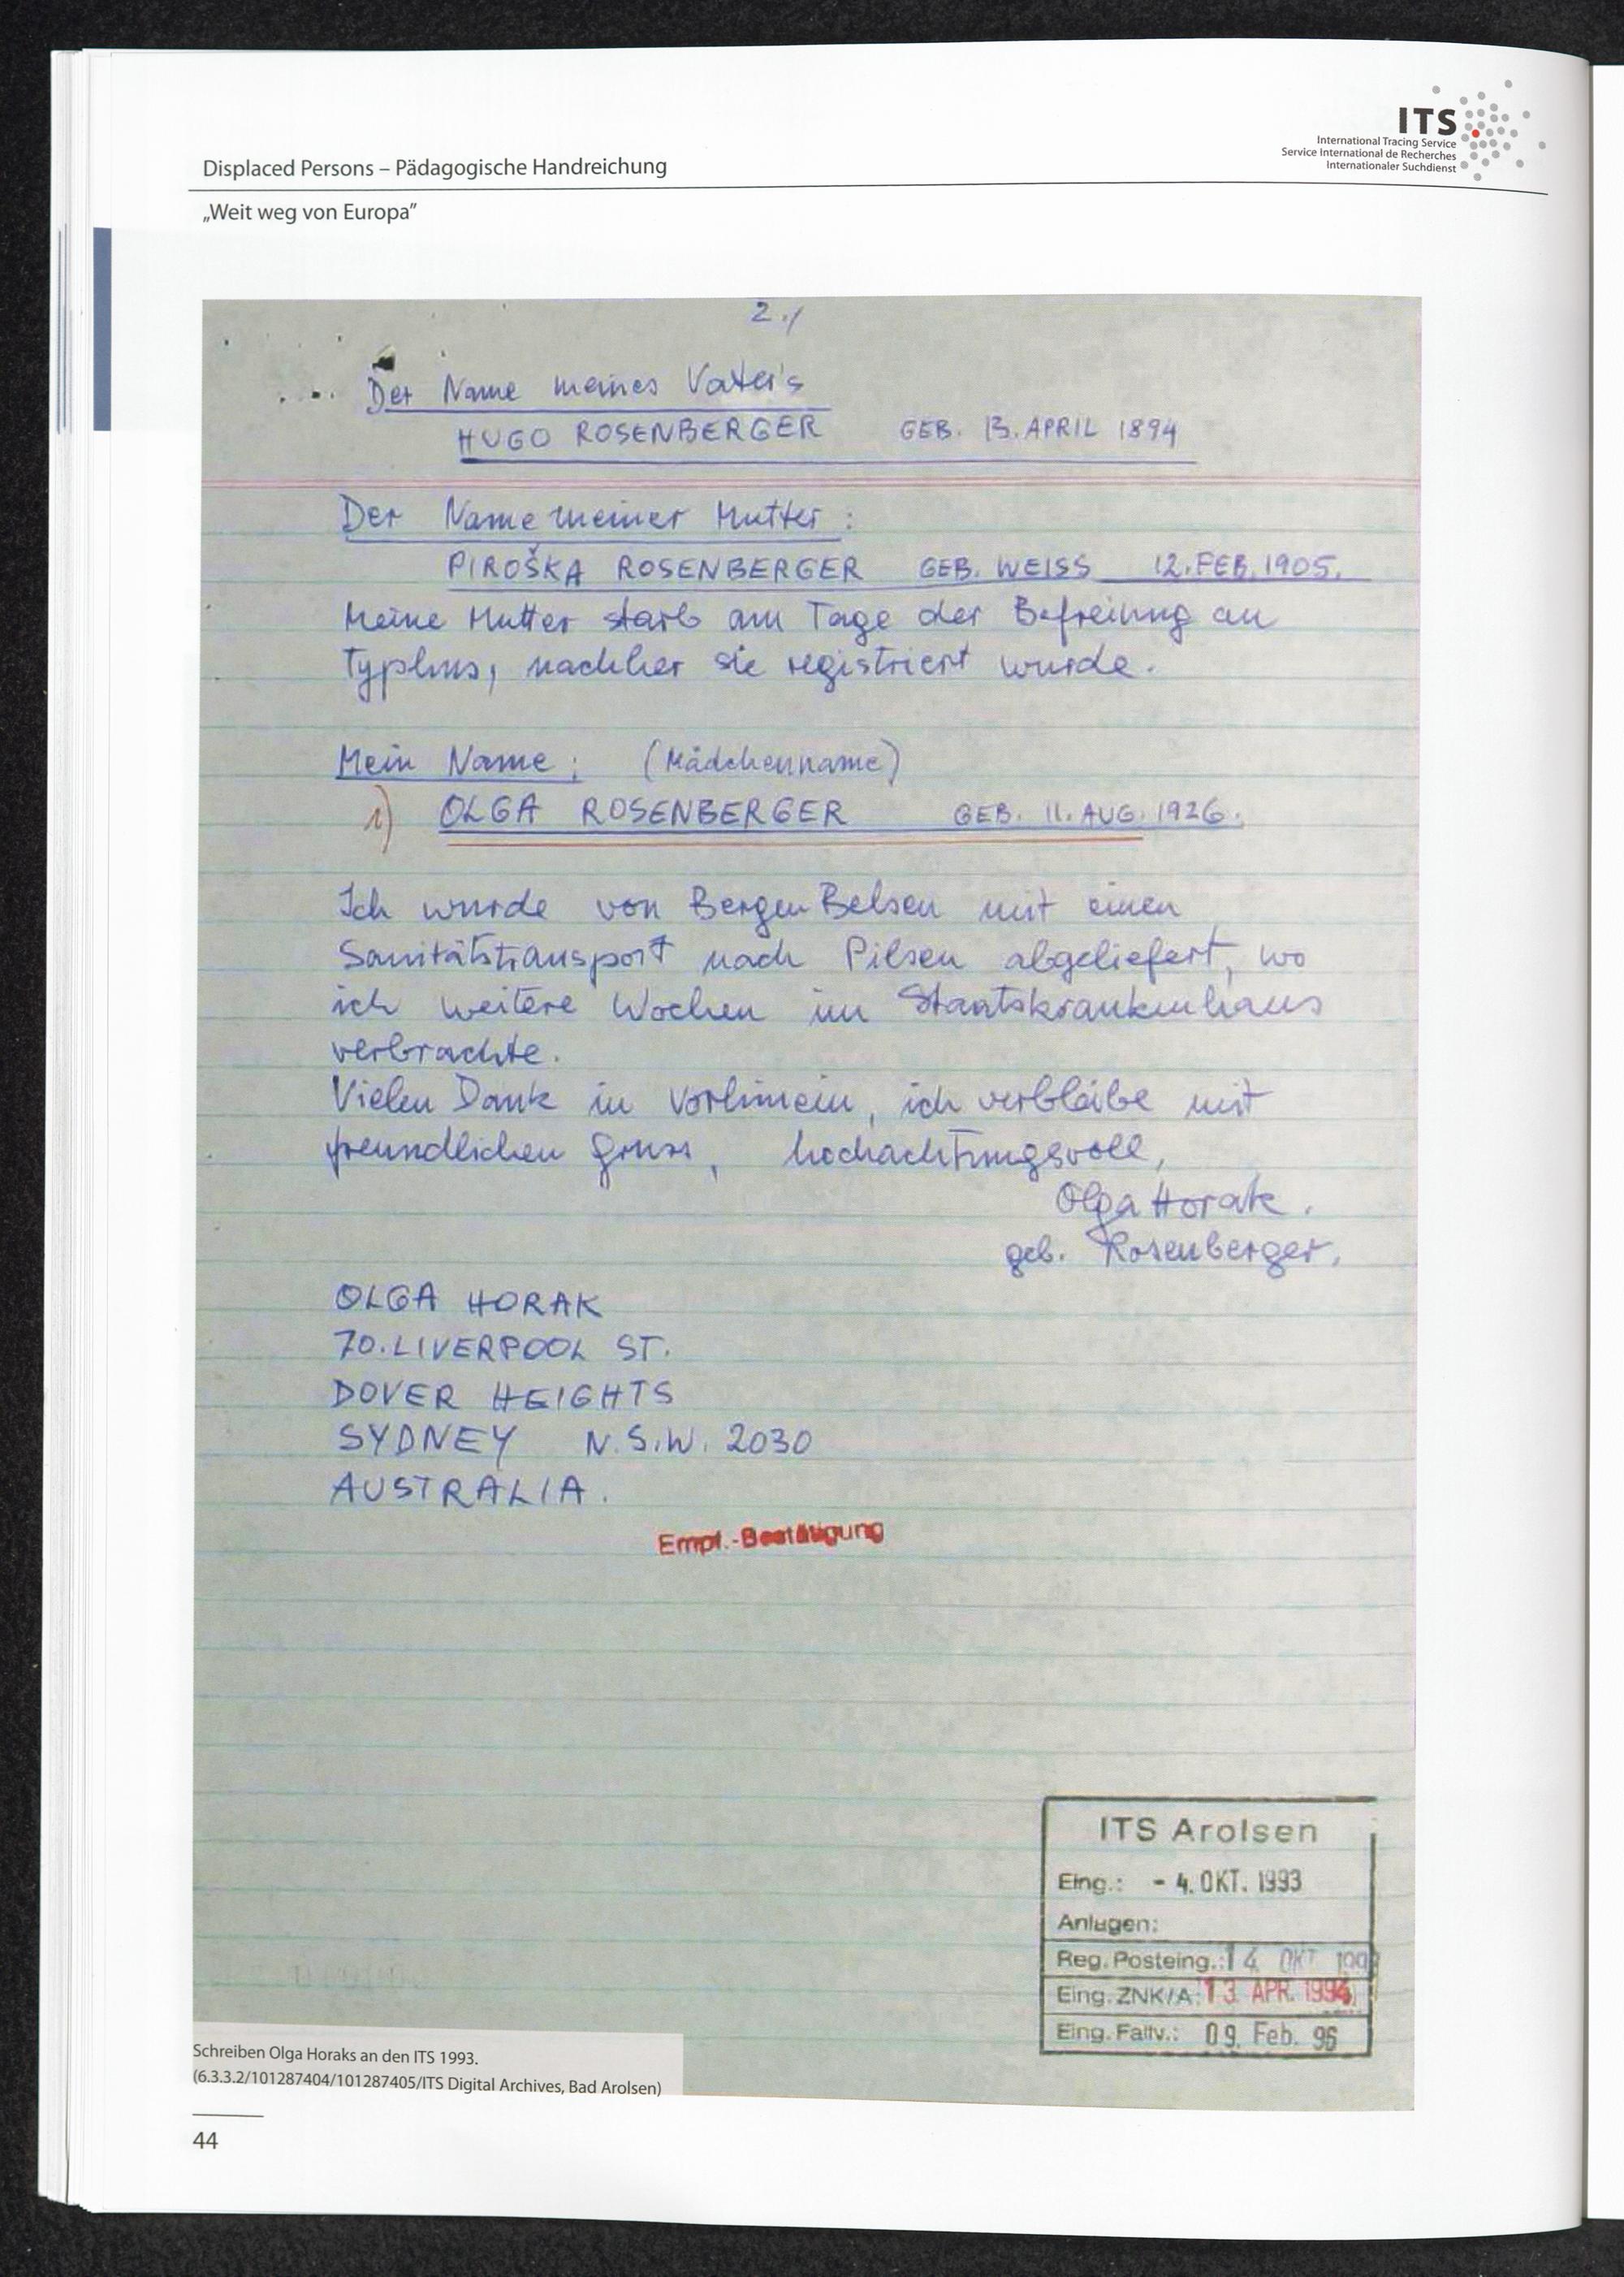 ITS
International Tracing Service
Service International de Recherches
Internationaler Suchdienst
Displaced Persons – Pädagogische Handreichung
„Weit weg von Europa”
2./
Der Name meines Vater's
HUGO ROSENBERGER GEB. 13. APRIL 1894
Der Name meiner Mutter :
PIROŠKA ROSENBERGER GEB. WEISS 12. FEB. 1905.
Meine Mutter starb am Tage der Befreiung an
Typhus, nachher sie registriert wurde.
Mein Name : (Mädchenname)
1) OLGA ROSENBERGER GEB. 11. AUG. 1926.
Ich wurde von Bergen Belsen mit einen
Sanitätstransport nach Pilsen abgeliefert, wo
ich weitere Wochen im Staatskrankenhaus
verbrachte.
Vielen Dank in vorhinein, ich verbleibe mit
freundlichen Gruss, hochachtungsvoll,
Olga Horak.
geb. Rosenberger.
OLGA HORAK
70. LIVERPOOL ST.
DOVER HEIGHTS
SYDNEY N.S.W. 2030
AUSTRALIA.
Empf.-Bestätigung
ITS Arolsen
Eing.: - 4. OKT. 1993
Anlagen:
Reg. Posteing.: 14. OKT
Eing. ZNK/A: 13. APR. 1994
Eing. Fallv.: 09. Feb. 96
Schreiben Olga Horaks an den ITS 1993.
(6.3.3.2/101287404/101287405/ITS Digital Archives, Bad Arolsen)
44